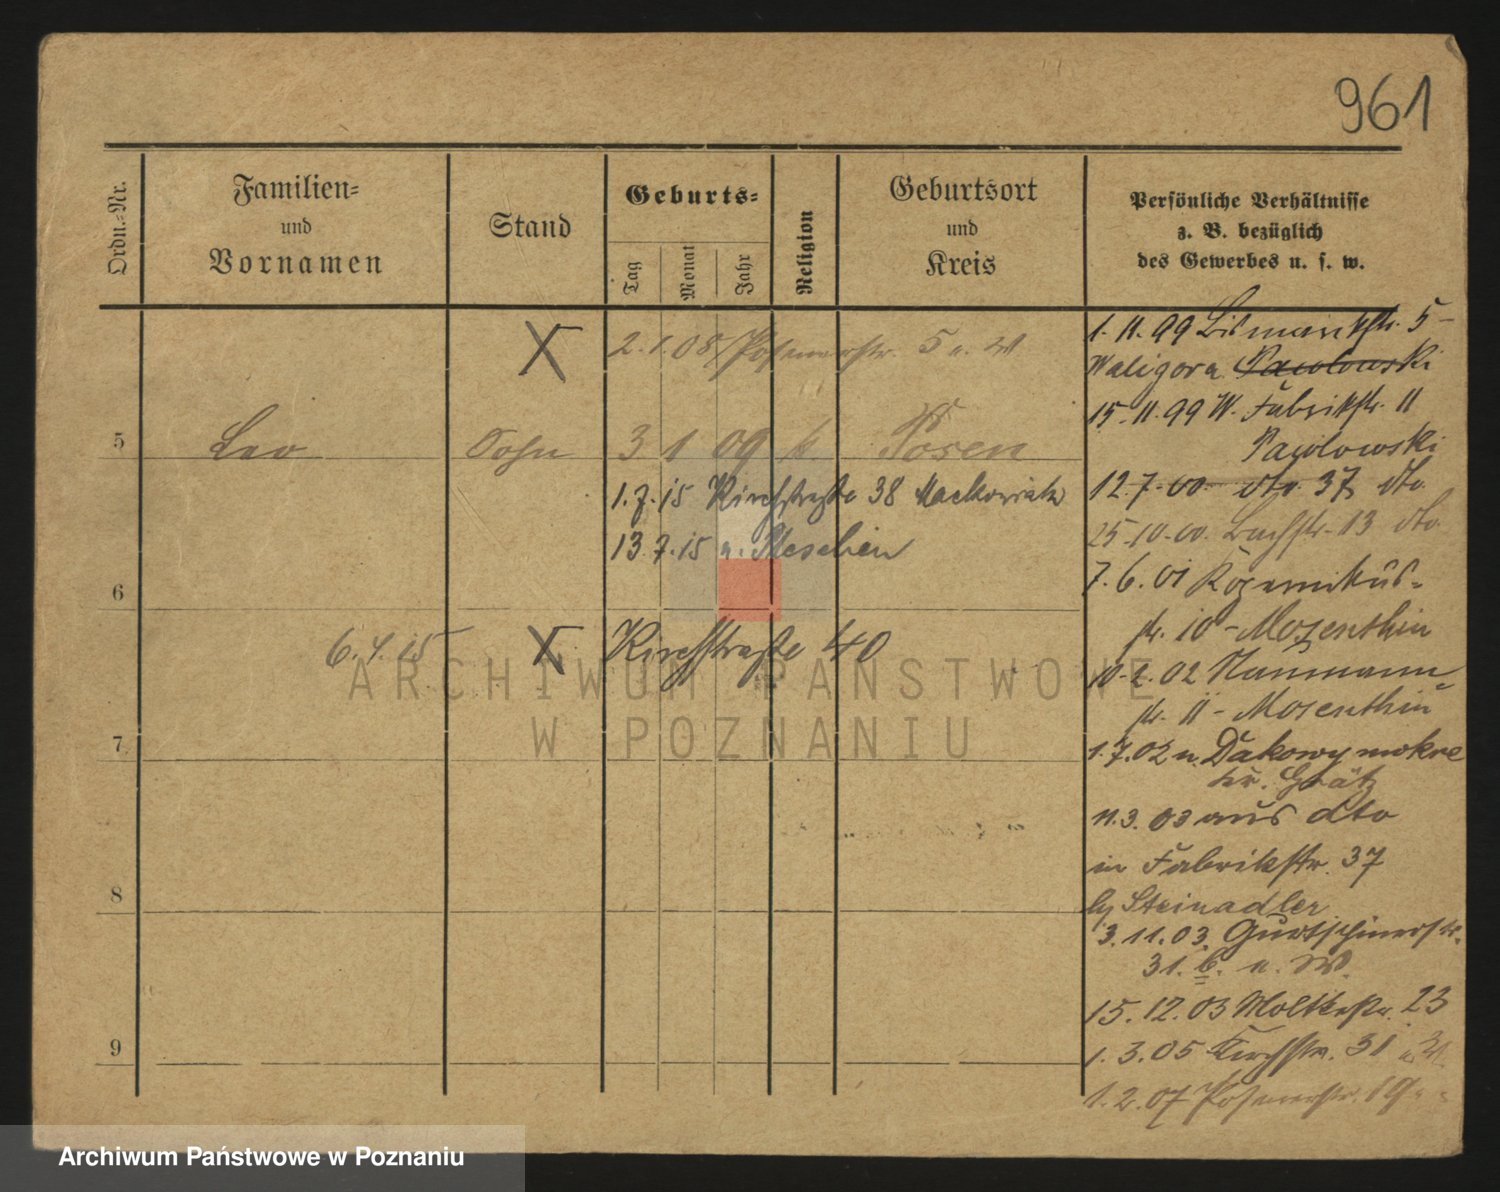 961
Ordn.-Nr.
Familien-
und
Vornamen
Stand
Geburts-
Tag
Monat
Jahr
Religion
Geburtsort
und
Kreis
Persönliche Verhältnisse
z. B. bezüglich
des Gewerbes u. s. w.
X 2.1.08 Posenerstr. 5 u. W
5 Leo Sohn 3 1 09 k. Posen
1.7.15 Kirchstraße 38 Mackowiak
13.7.15 n. Meschen
6
6.4.15 X Kirchstraße 40
7
8
9
1.11.99 Bismarckstr. 5 -
Waligora Pawlowski
15.11.99 W. Fabrikstr. 11
Pawlowski
12.7.00 dto 37 dto
25.10.00 Bachstr. 13 dto
7.6.01 Kopernikus-
str. 10 - Mosenthin
10.2.02 Naumann
str. 11 - Mosenthin
1.7.02 n. Dakowy mokre
Kr. Grätz
11.3.03 aus dto
in Fabrikstr. 37
by Steinadler
3.11.03. Gurtschinerstr.
31. b. u. W.
15.12.03 Moltkestr. 23
1.3.05 Kirchstr. 31 u. W.
1.2.07 Posenerstr. 19
ARCHIWUM PAŃSTWOWE
W POZNANIU
Archiwum Państwowe w Poznaniu